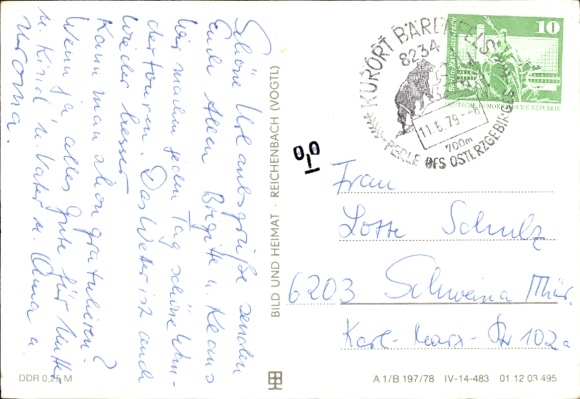 Schöne Urlaubsgrüße senden
Euch allen Brigitte u. Klaus
Wir machen jeden Tag schöne Wan-
dertouren. Das Wetter ist auch
wieder besser.
Kann man schon gratulieren?
Wenn ja alles Gute für Mutter
u. Kind u. Vater u. Oma u.
Uroma.
DDR 0,25 M
BILD UND HEIMAT · REICHENBACH (VOGTL)
KURORT BÄRENFELS
8234
11.6.79
700m
PERLE DES OSTERZGEBIRGES
10
Frau
Lotte Schulz
6203 Schweina Thür.
Karl-Marx-Str 102a
A 1/B 197/78 IV-14-483 01 12 03 495